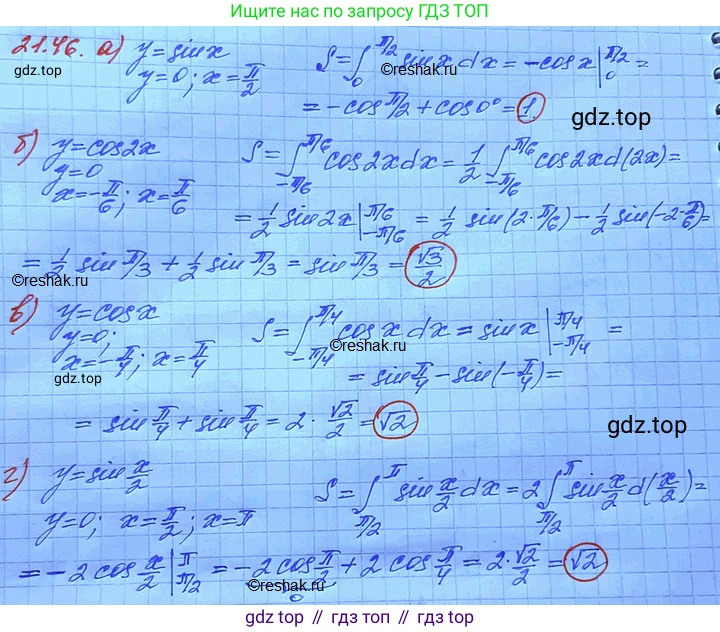 Ищите нас по запросу ГДЗ ТОП
21.46. а) y=sinx
y=0; x=π/2
S=∫₀^{π/2} sinx dx = -cosx|₀^{π/2} =
= -cos π/2 + cos0° = 1.
gdz.top
©reshak.ru
gdz.top
б) y=cos2x
y=0
x=-π/6; x=π/6
S=∫_{-π/6}^{π/6} cos2xdx = 1/2 ∫_{-π/6}^{π/6} cos2xd(2x) =
= 1/2 sin2x|_{-π/6}^{π/6} = 1/2 sin(2·π/6) - 1/2 sin(-2·π/6) =
= 1/2 sin π/3 + 1/2 sin π/3 = sin π/3 = √3/2
©reshak.ru
в) y=cosx
y=0;
x=-π/4; x=π/4
S=∫_{-π/4}^{π/4} cosx dx = sinx|_{-π/4}^{π/4} =
©reshak.ru
= sin π/4 - sin(-π/4) =
gdz.top
= sin π/4 + sin π/4 = 2·√2/2 = √2
gdz.top
г) y=sin x/2
y=0; x=π/2; x=π
S=∫_{π/2}^{π} sin x/2 dx = 2∫_{π/2}^{π} sin x/2 d(x/2) =
gdz.top
= -2cos x/2|_{π/2}^{π} = -2cos π/2 + 2cos π/4 = 2·√2/2 = √2
0
©reshak.ru
gdz.top // гдз топ // gdz.top